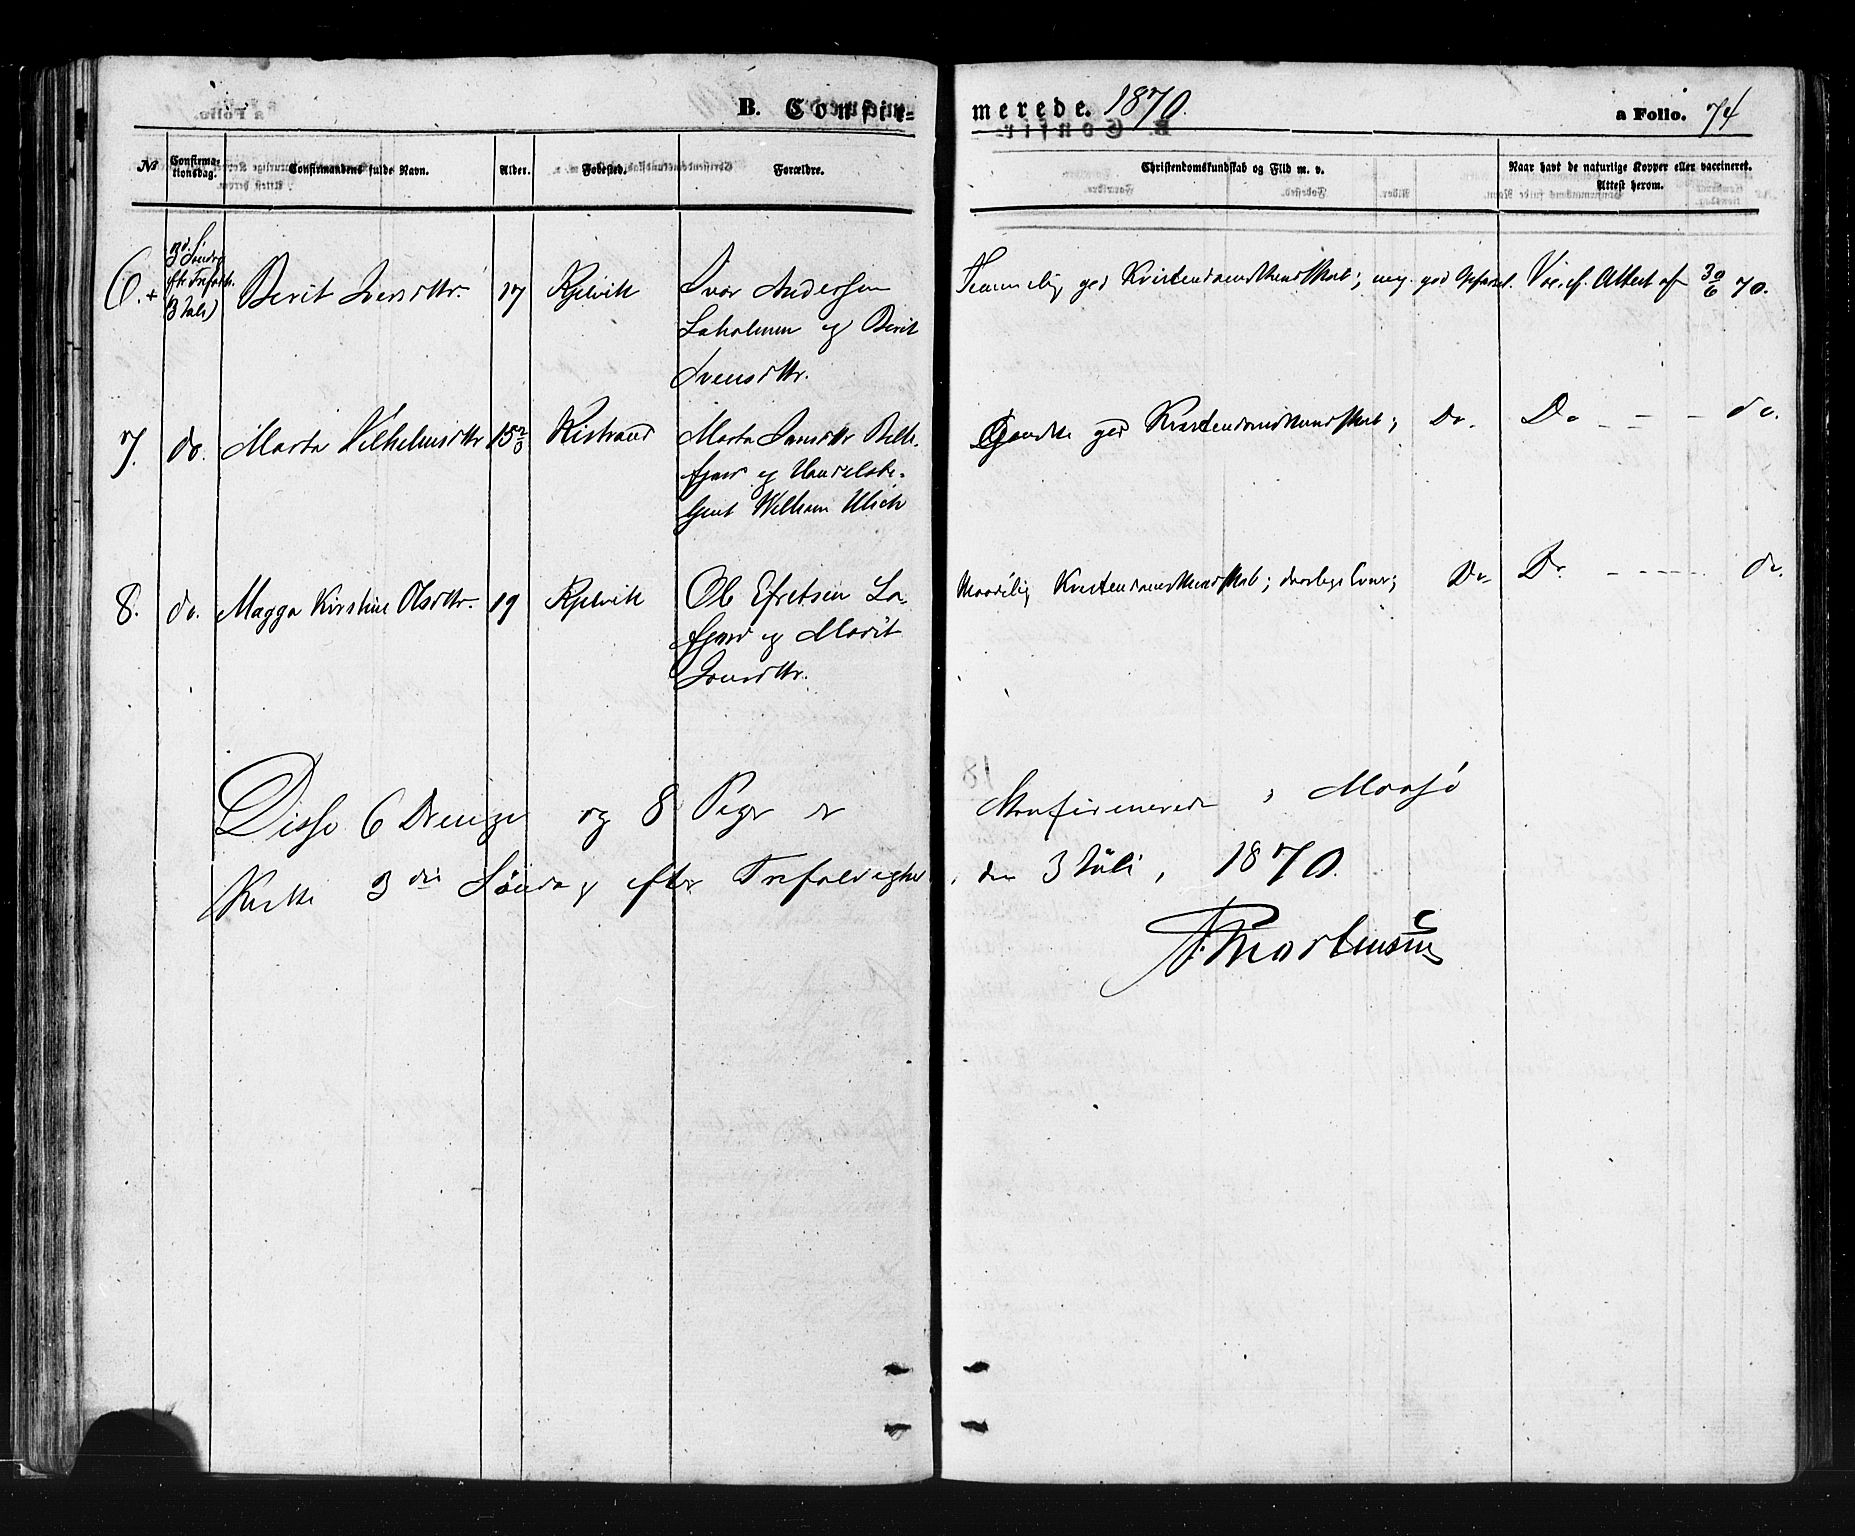 B. Confir=merede. 1870. a Folio. 74
No Confirma-tionsdag. Confirmandens fulde Navn. Alder. Fødested. Forældre. Christendomskundskab og Flid m. v. Naar havt de naturlige Kopper eller vaccineret. Attest herom.
6. + 3d. Søndag
eftr Trefoldh.
3 Juli)
Berit Iversdttr. 17 Repvik Ivar Andersen
og Berit
Ivensdttr.
god Kristendomskundskab; meg. god Opførsel. Vac. cf. Attest af 30/6 70.
7. do. Marta Vilhelmsdttr 15 Kistrand Marta
og Handelsbe-
tjent William Ulich
god Kristendomskundskab; Do. Do - - do.
8. do. Magga Kirstine Olsdttr. 19 Repvik Ole
og Marit
Jonsdttr.
Maadelig Kristendomskundskab; daarlige Evner; Do. Do. - - - - do.
Disse 6 Drenge og 8 Piger er Konfirmerede i Maasö
Kirke 3die Söndag efter Trefoldighed, den 3 Juli, 1870.
Mortensen